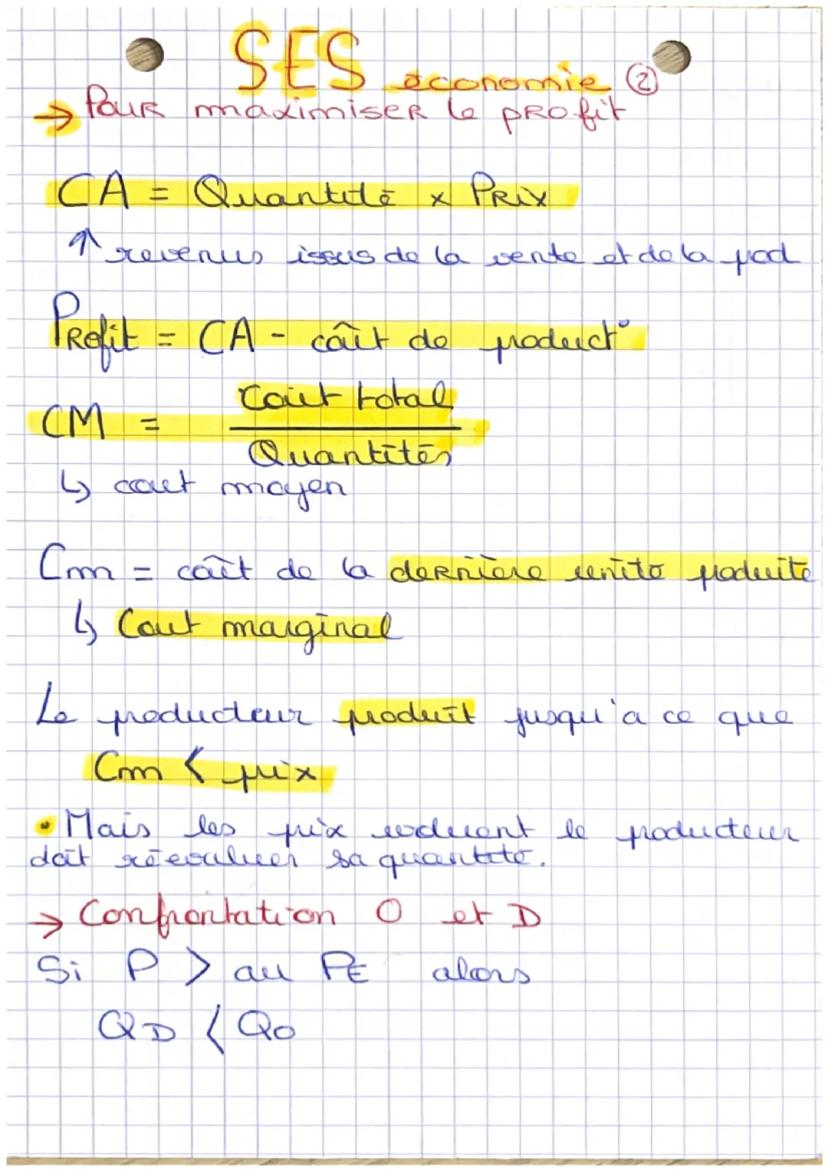 SES économie ②
→ Pour maximiser le profit
CA = Quantité x Prix
↑ revenus issus de la vente et de la prod
Profit = CA - coût de product°
CM = Coût total
Quantités
↳ cout moyen
Cm = coût de la dernière unité produite
↳ Cout marginal
Le producteur produit jusqu'a ce que
Cm < prix
• Mais les prix évoluent le producteur
doit réévaluer sa quantité.
→ Confrontation O et D
Si P > au PE alors
QD < QO